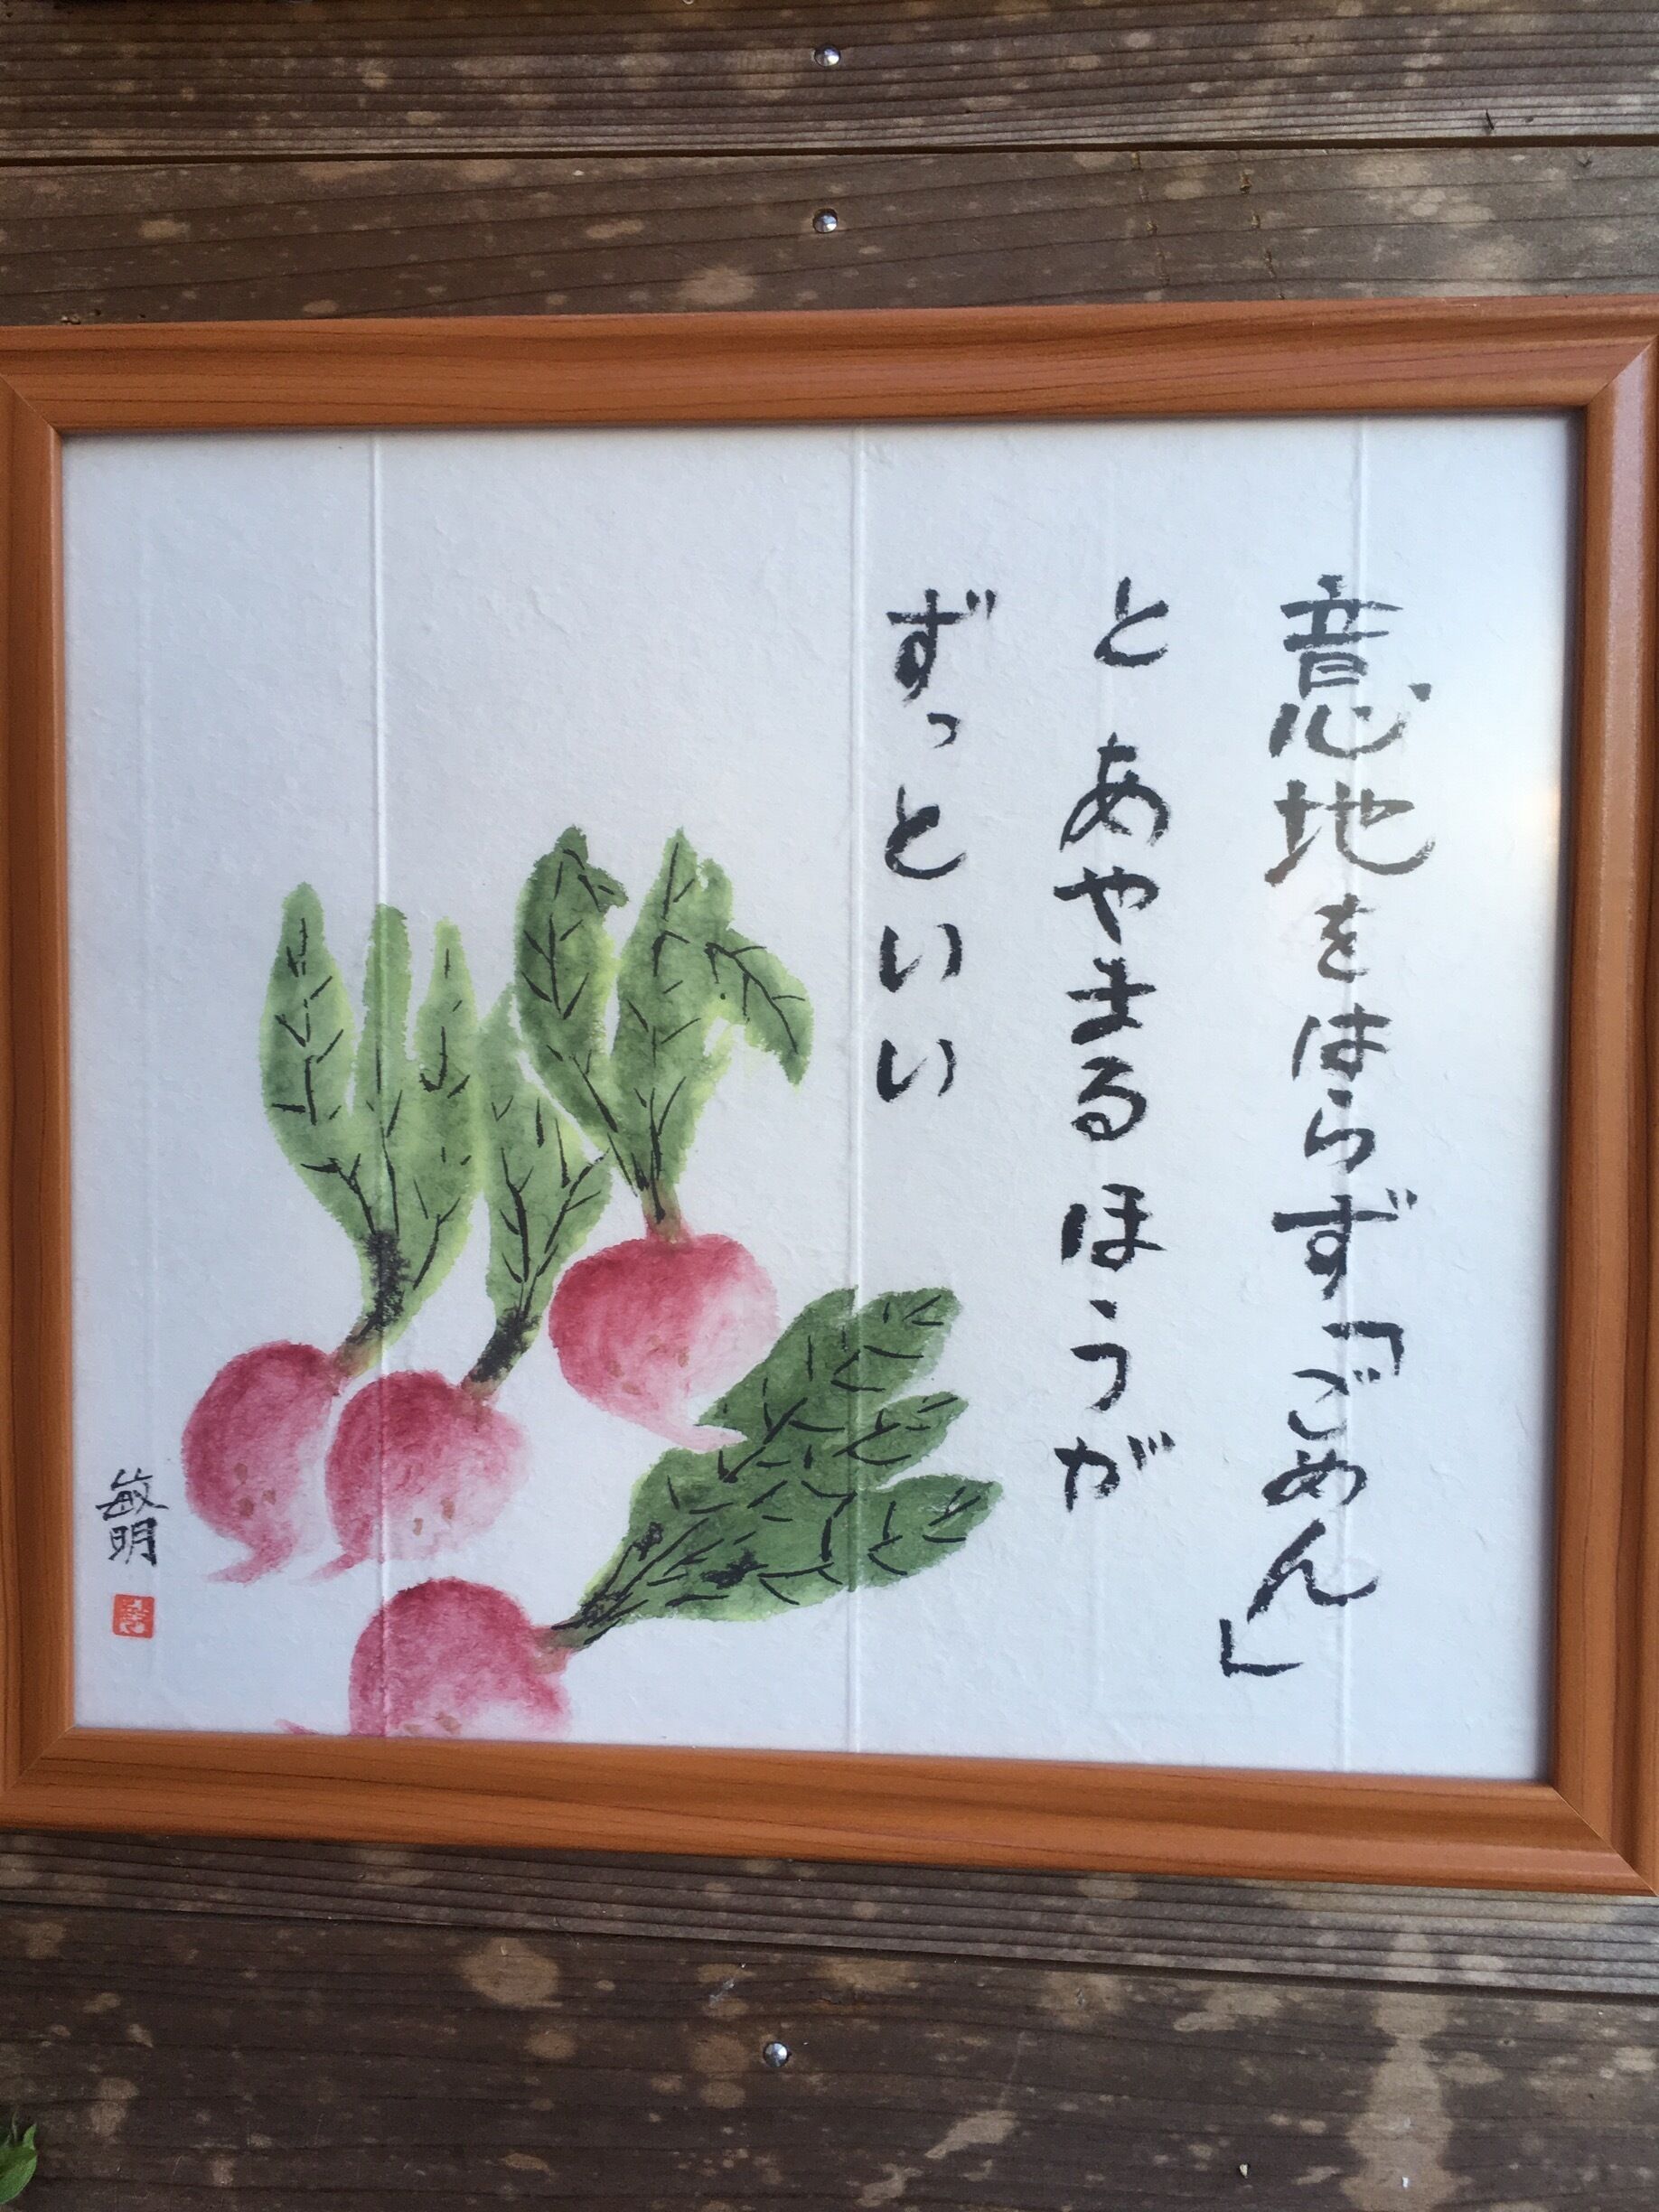 意地をはらず「ごめん」
とあやまるほうが
ずっといい
敏明